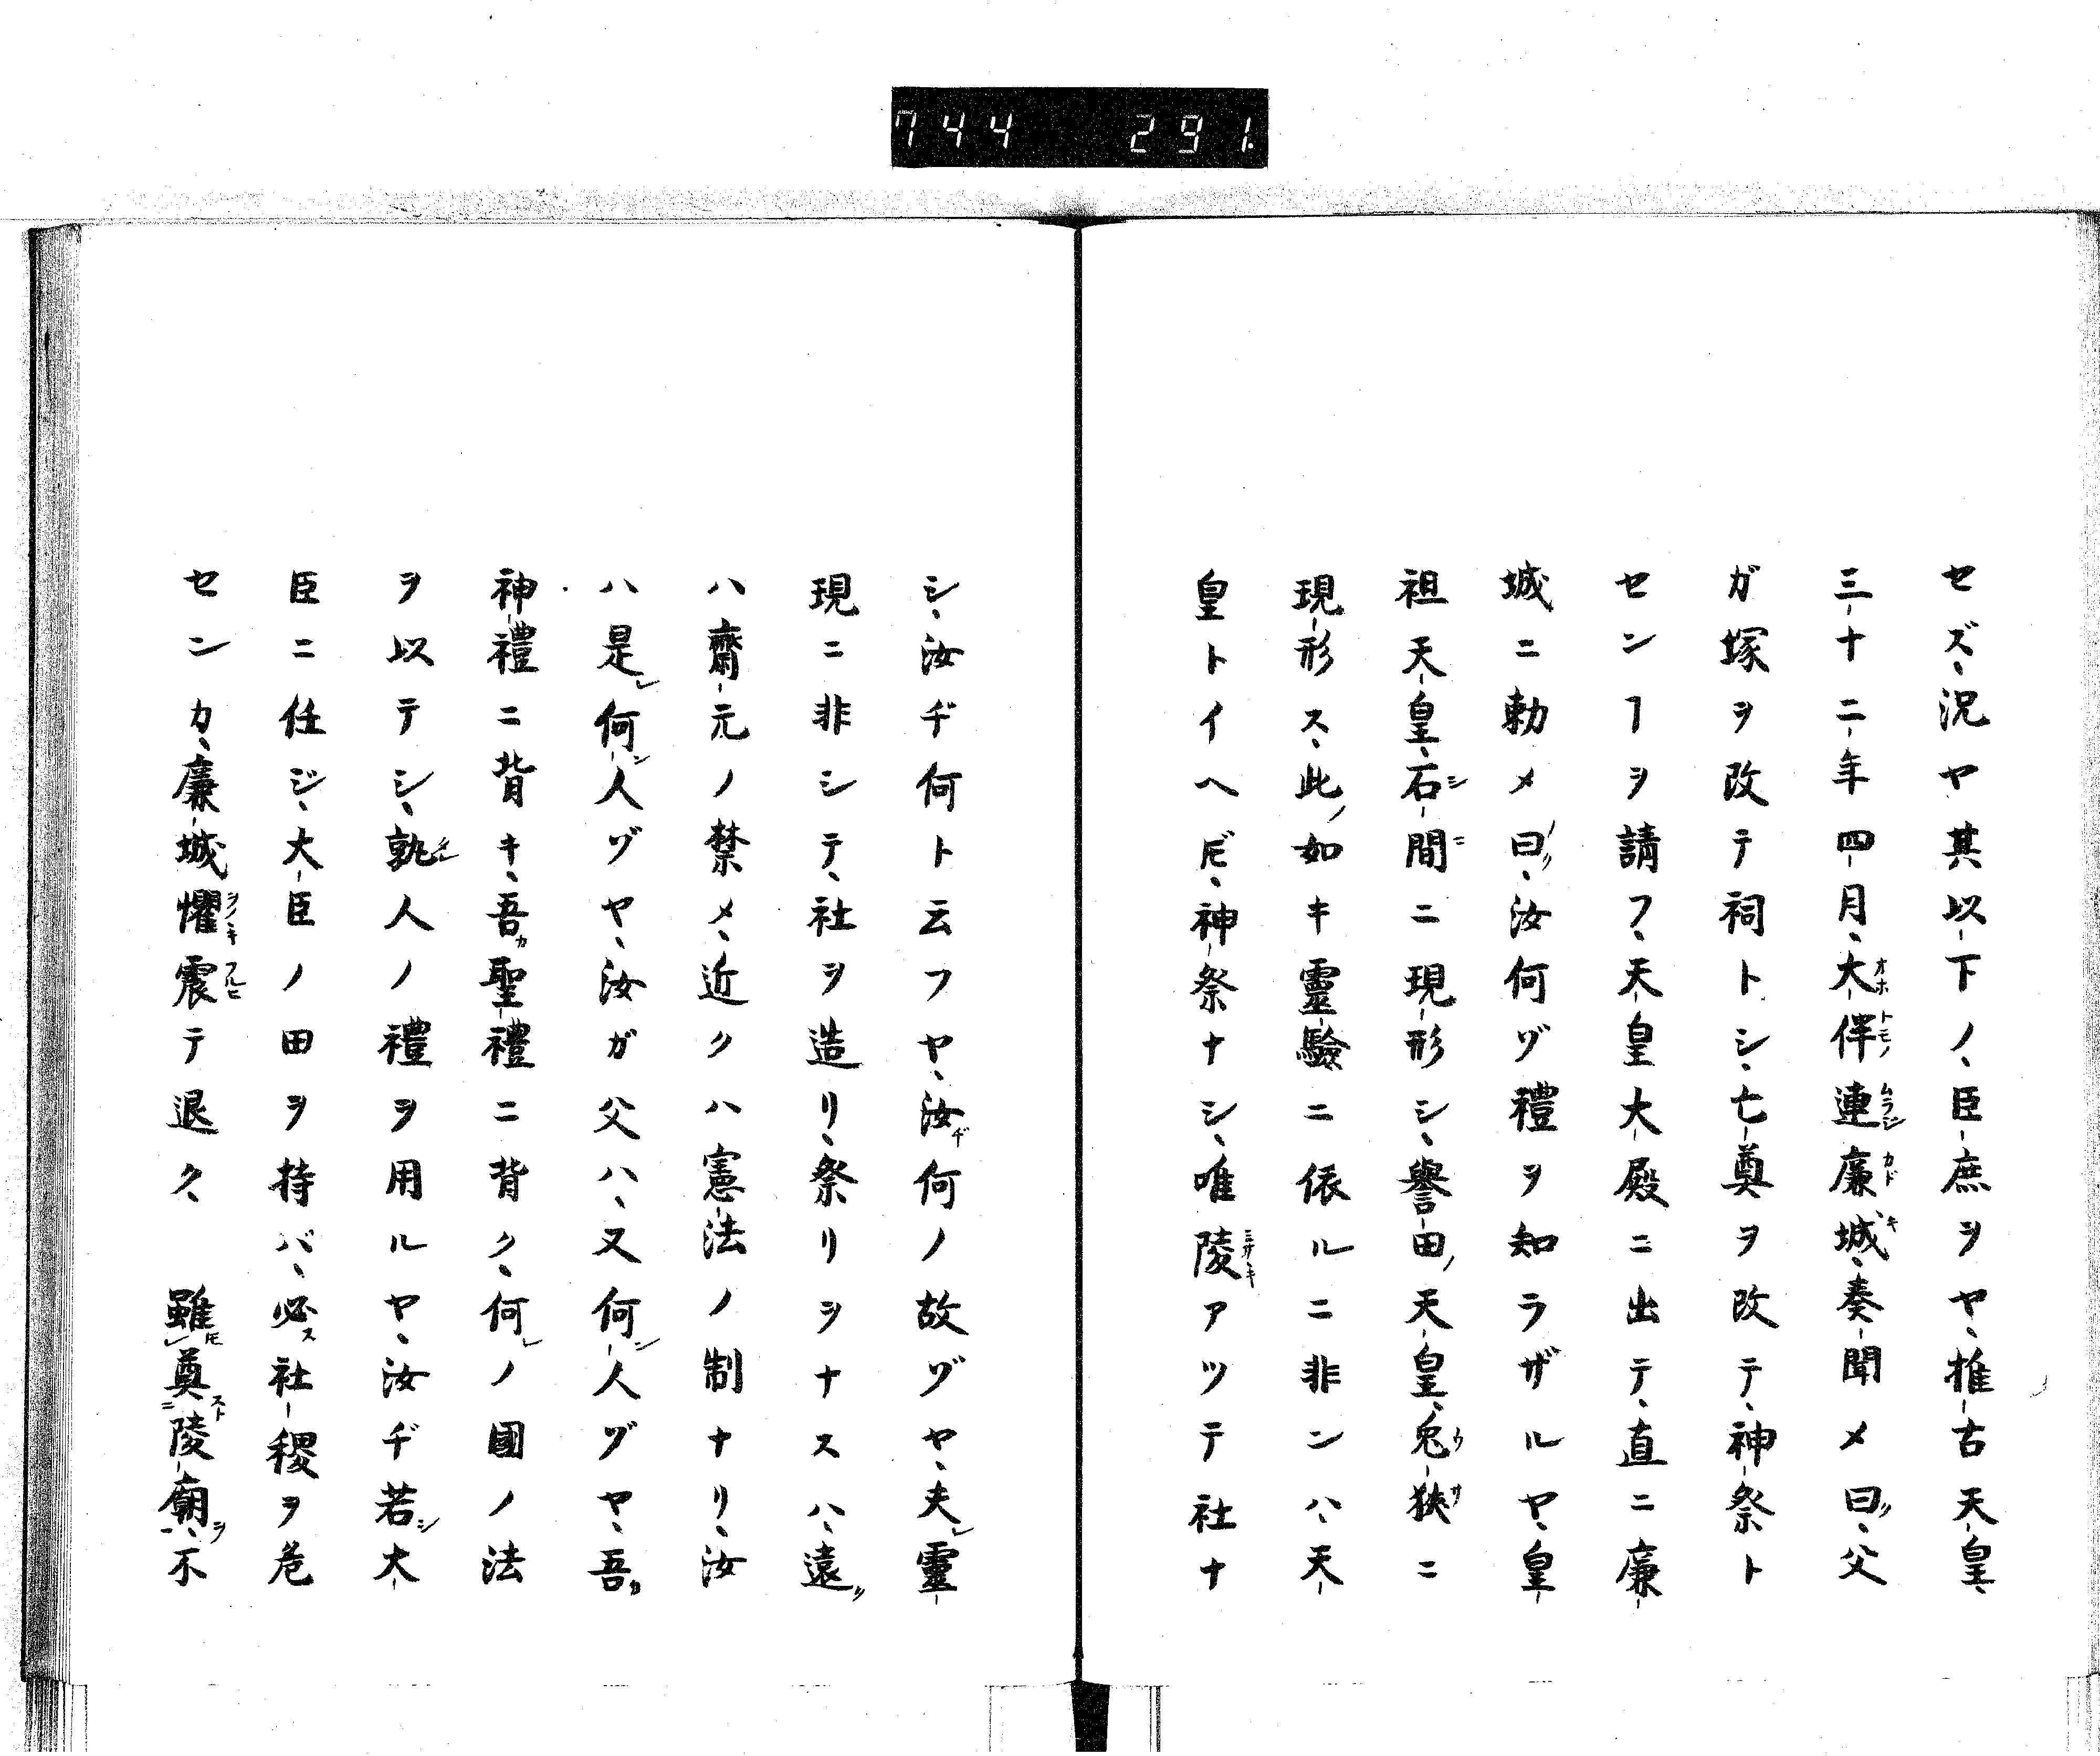 744 291.
セズ、況ヤ其以下ノ、臣庶ヲヤ、推古天皇、
三十二年四月、大伴連廉城、奏聞メ曰、父
ガ塚ヲ改テ祠トシ、七奠ヲ改テ、神祭ト
センヿヲ請フ、天皇大殿ニ出テ、直ニ廉
城ニ勅メ曰、汝何ゾ禮ヲ知ラザルヤ、皇
祖天皇、石間ニ現形シ、譽田天皇、兎狹ニ
現形ス、此如キ靈驗ニ依ルニ非ンハ、天
皇トイヘ𪜈、神祭ナシ、唯陵アツテ社ナ
シ、汝ヂ何ト云フヤ、汝ヂ何ノ故ゾヤ、夫レ靈
現ニ非シテ、社ヲ造リ、祭リヲナスハ、遠ク
ハ齋元ノ禁メ、近クハ憲法ノ制ナリ、汝
ハ是レ何ン人ゾヤ、汝ガ父ハ、又何ン人ゾヤ、吾カ
神禮ニ背キ、吾カ聖禮ニ背ク、何レノ國ノ法
ヲ以テシ、孰レ人ノ禮ヲ用ルヤ、汝ヂ若シ大
臣ニ任ジ、大臣ノ田ヲ持バ、必ス社稷ヲ危
センカ、廉城懼震テ退ク、 雖奠陵廟、不